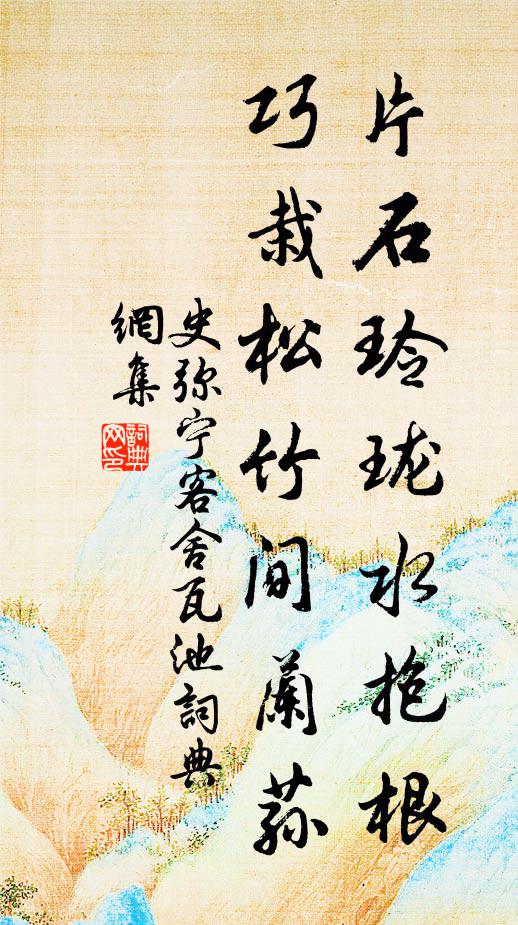 片石玲珑水抱根
巧栽松竹间兰荪
史弥宁客舍瓦池詞典
網集
詞典
网印